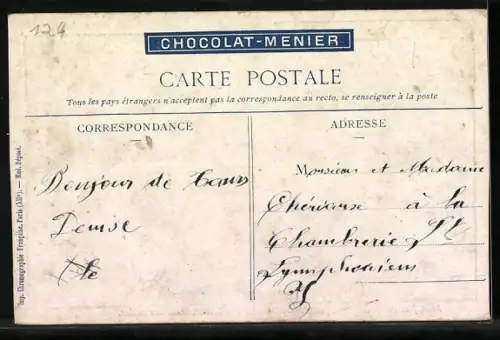 129
CHOCOLAT-MENIER
CARTE POSTALE
Tous les pays étrangers n'acceptent pas la correspondance au recto, se renseigner à la poste
CORRESPONDANCE
ADRESSE
Bonjour de
Denise
Monsieur et Madame
à la
Chambrerie St
Symphorien
Imp. Chromographie Française, Paris (XIIe). — Mod. Déposé.